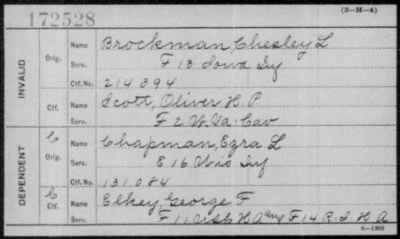 172528
(3-H-4)
INVALID
Orig.
Name Brockman, Chesley L
Serv. F 13 Iowa Inf
Ctf. No. 214394
Ctf.
Name Scott, Oliver H. P.
Serv. F 2 W. Va. Cav
DEPENDENT
C Orig.
Name Chapman, Ezra L
Serv. E 16 Wis Inf
Ctf. No. 131084
C Ctf.
Name Elkey, George F
Serv. F 11 H A F 14 R. I. H A
6-1303